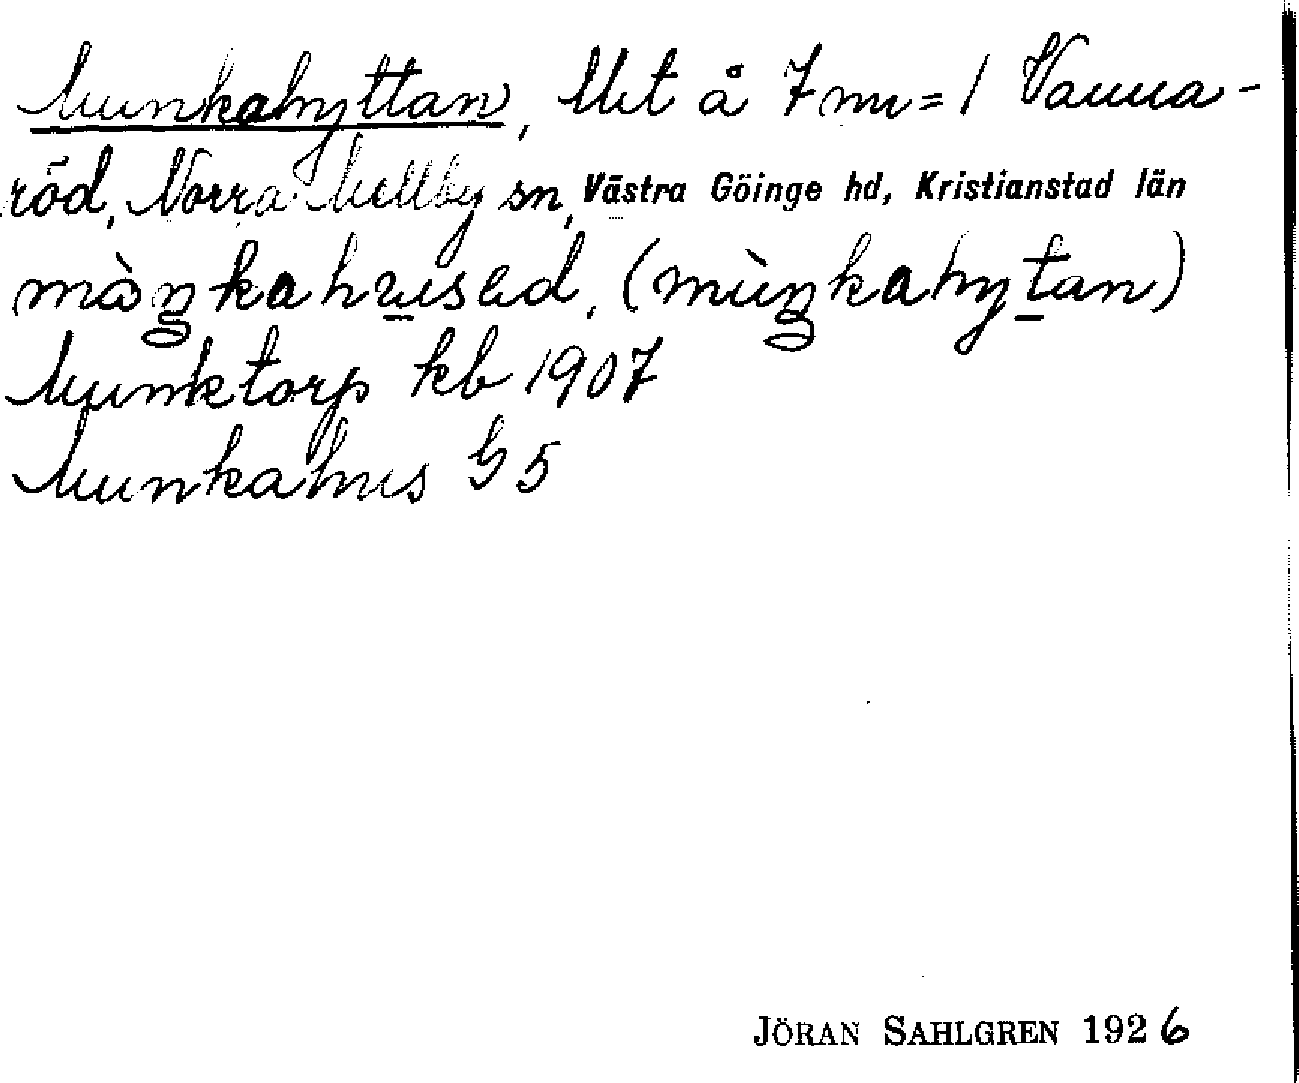 Munkahyttan, Utt å 7 mn = 1 Vanna-
röd, Norra Mellby sn, Västra Göinge hd, Kristianstad län
màŋkahusəd, (mùŋkahytan)
Munktorp kb 1907
Munkahus G5
JÖRAN SAHLGREN 1926